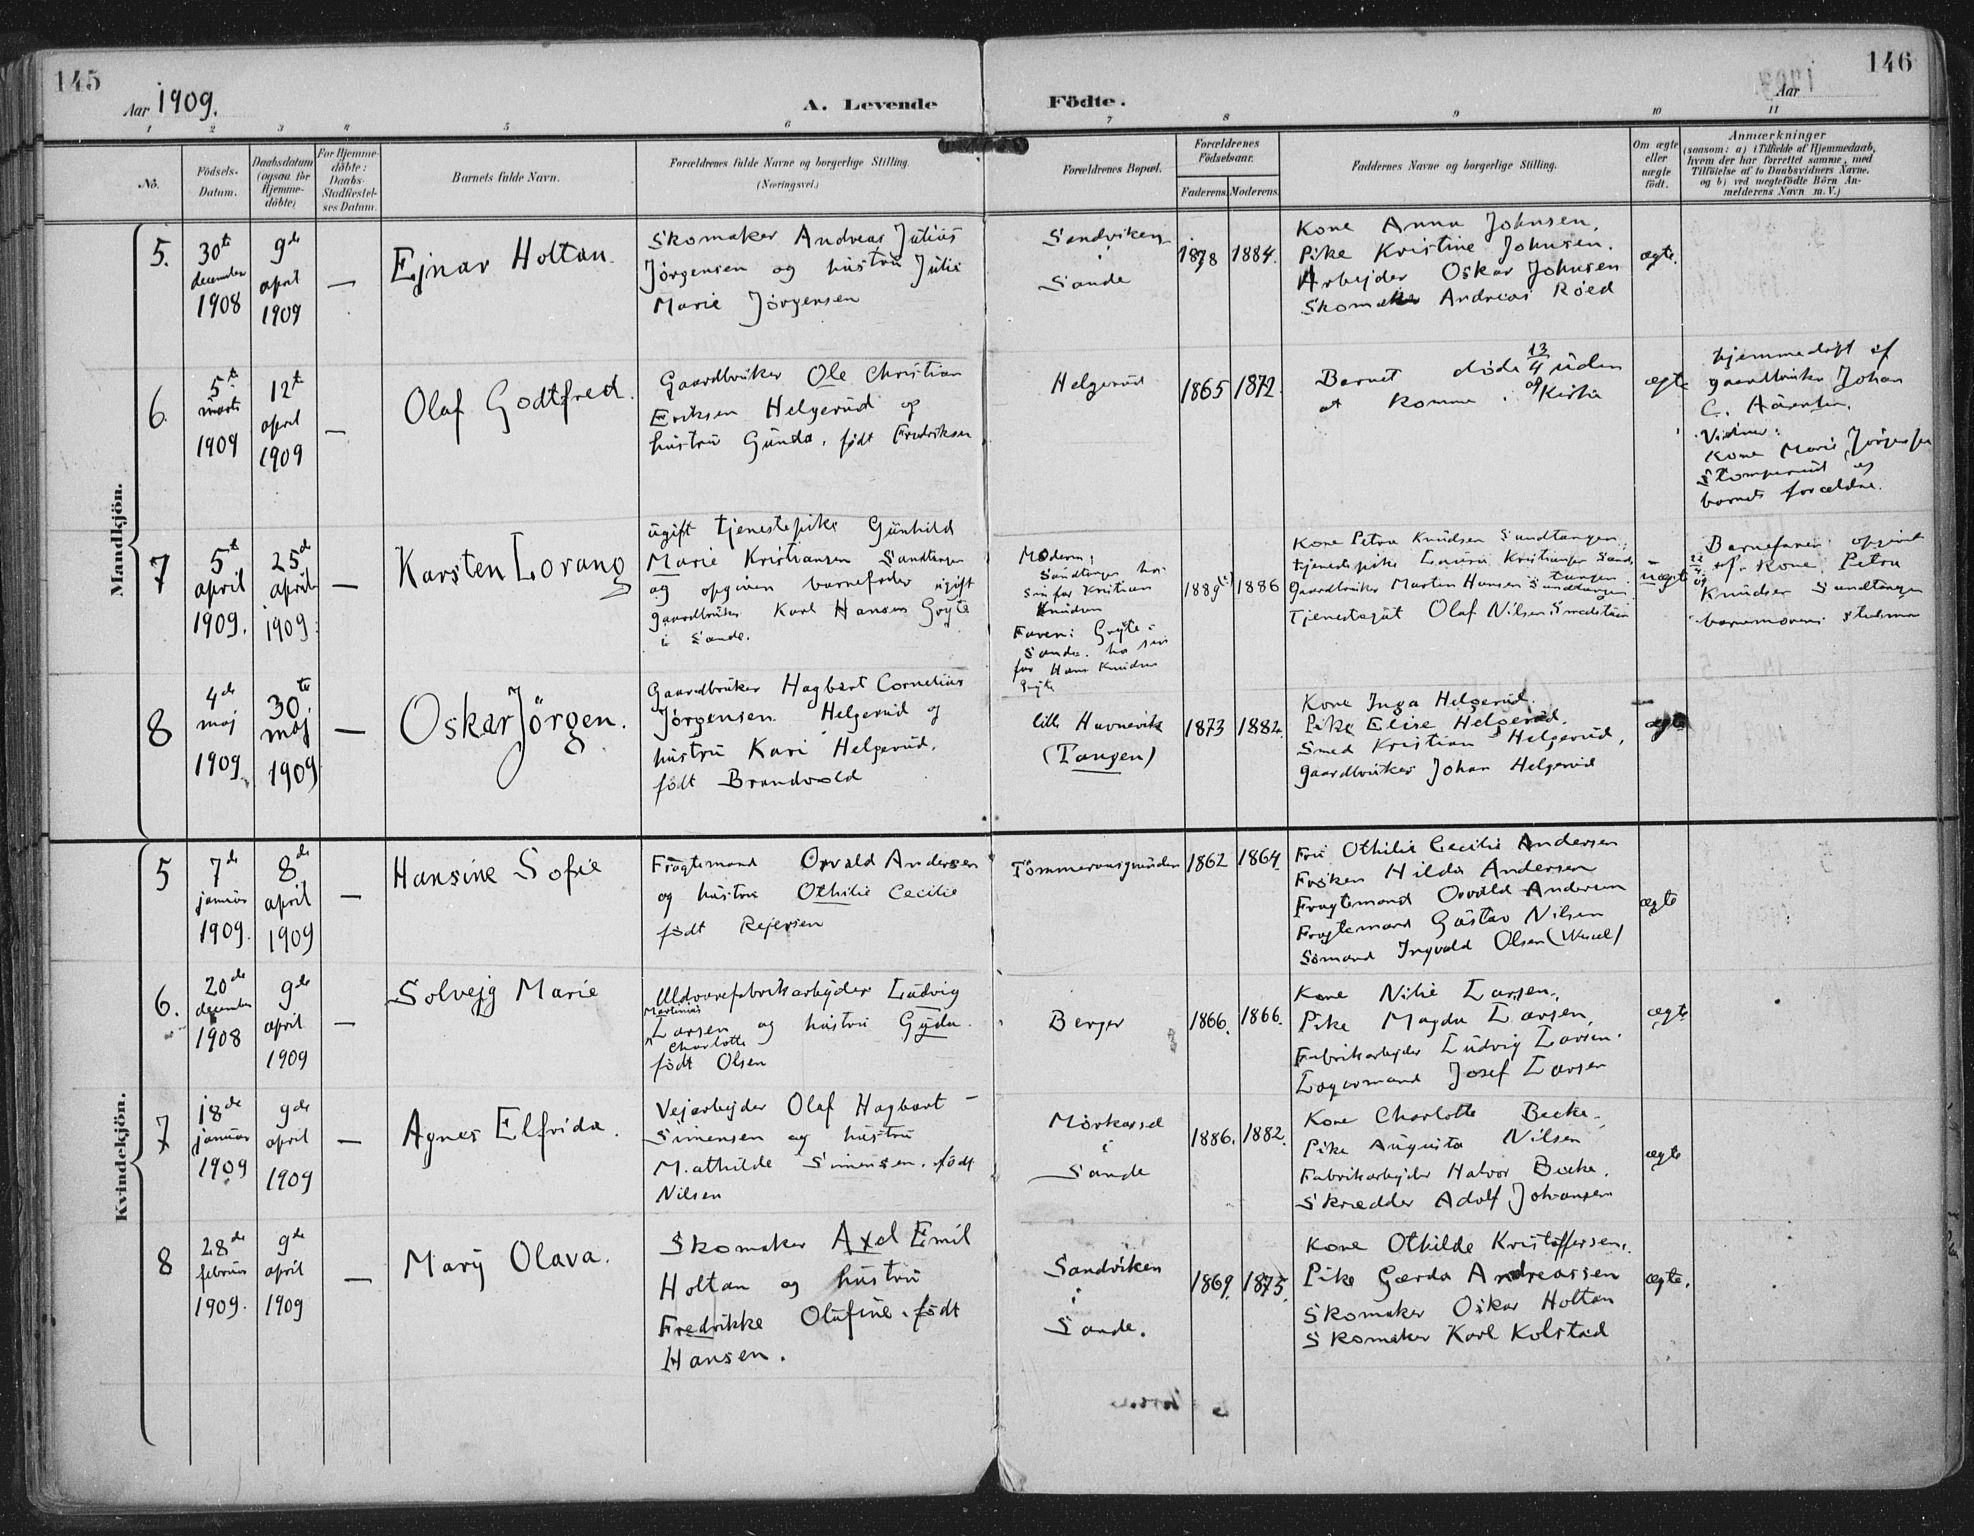 145
146
Aar 1909.
A. Levende
Födte.
Aar
1 2 3 4 5 6 7 8 9 10 11
No.
Födsels-
Datum.
Daabsdatum
(ogsaa for
Hjemme-
döbte)
For Hjemme-
döbte:
Daabs-
Stadfæstel-
ses Datum.
Barnets fulde Navn.
Forældrenes fulde Navne og borgerlige Stilling.
(Næringsvei.)
Forældrenes Bopæl.
Forældrenes
Födselsaar.
Faderens. Moderens.
Faddernes Navne og borgerlige Stilling.
Om ægte
eller
uægte
födt.
Anmærkninger
(saasom: a) i Tilfælde af Hjemmedaab,
hvem der har forrettet samme, med
Tilföielse af to Daabsvidners Navne.
og b) ved uægtefödte Börn An-
melderens Navn m. V.)
Mandkjön.
5.
30te
december
1908
9de
april
1909
—
Ejnar Holtan.
Skomaker Andreas Julius
Jörgensen og hustru Julie
Marie Jörgensen
Sandviken
i
Sande
1878
1884.
Kone Anna Johnsen.
Pike Kristine Johnsen.
Arbejder Oskar Johnsen
Skomaker Andreas Röed
ægte.
6.
5te
marts
1909
12te
april
1909
—
Olaf Godtfred.
Gaardbruker Ole Christian
Eriksen Helgerud og
hustru Gunda, födt Fredriksen
Helgerud
1865
1872.
Barnet döde 13/4 uden
at komme i Kirke
ægte
hjemmedöpt af
gaardbruker Johan
C.
Vidner:
Kone Marie Jörgensen
og
barnets forældre.
7
5te
april
1909.
25de
april
1909.
—
Karsten Lorang
ugift tjenestepike Gunhild
Marie Kristiansen Sandtangen
og opgiven barnefader ugift
gaardbruker Karl Hansen Gryte
i Sande.
Moderen:
Sandtangen hos
sin far Kristian
Knudsen
Faren: Gryte i
Sande. hos sin
far Hans Knudsen
Gryte
1889(?)
1886
Kone Petra Knudsen Sandtangen.
tjenestepike Laura Kristiansen Sand-
tangen.
Gaardbruker Martin Hansen Sandtangen
Tjenestegut Olaf Nilsen Smedstuen
uægte
Barnefaren opgivet
22/4 09 af Kone Petra
Knudsen Sandtangen
barnemorens stedmor
8
4de
maj
1909.
30te
maj
1909
—
Oskar Jörgen.
Gaardbruker Hagbart Cornelius
Jörgensen Helgerud og
hustru Kari Helgerud.
födt Brandvold
lille Havnevik
(Tangen)
1873
1882.
Kone Inga Helgerud.
Pike Elise Helgerud.
Smed Kristian Helgerud,
gaardbruker Johan Helgerud
ægte
Kvindekjön.
5
7de
januar
1909.
8de
april
1909
—
Hansine Sofie
Fragtemand Osvald Andersen
og hustru Othilie Cecilie
födt Rejersen
1862
1864.
Fru Othilie Cecilie Andersen
Fröken Hilda Andersen
Fragtemand Osvald Andersen
Fragtemand Gustav Nilsen
Sömand Ingvald Olsen
ægte
6.
20de
december
1908
9de
april
1909
—
Solvejg Marie
Uldvarefabrikarbejder Ludvig
Martinius
Larsen og hustru Gyda.
Charlotte
födt Olsen
Berger
1866.
1866.
Kone Larsen.
Pike Magda Larsen,
Fabrikarbejder Ludvig Larsen.
Lagermand Josef Larsen
ægte
7
18de
januar
1909
9de
april
1909
—
Agnes Elfrida.
Vejarbejder Olaf Hagbart
Simensen og hustru
Mathilde Simensen. födt
Nilsen
Mörkassel
i
Sande
1886.
1882.
Kone Charlotte Becke.
Pike Augusta Nilsen
Fabrikarbejder Halvor Becke.
Skrædder Adolf Johansen
ægte
8
28de
februar
1909.
9de
april
1909
—
Mary Olava.
Skomaker Axel Emil
Holtan og hustru
Fredrikke Olufine. födt
Hansen.
Sandviken
i
Sande.
1869.
1875.
Kone Othilde Kristoffersen.
Pike Gærda Andreassen
Skomaker Oskar Holtan
Skomaker Karl Kolstad
ægte.